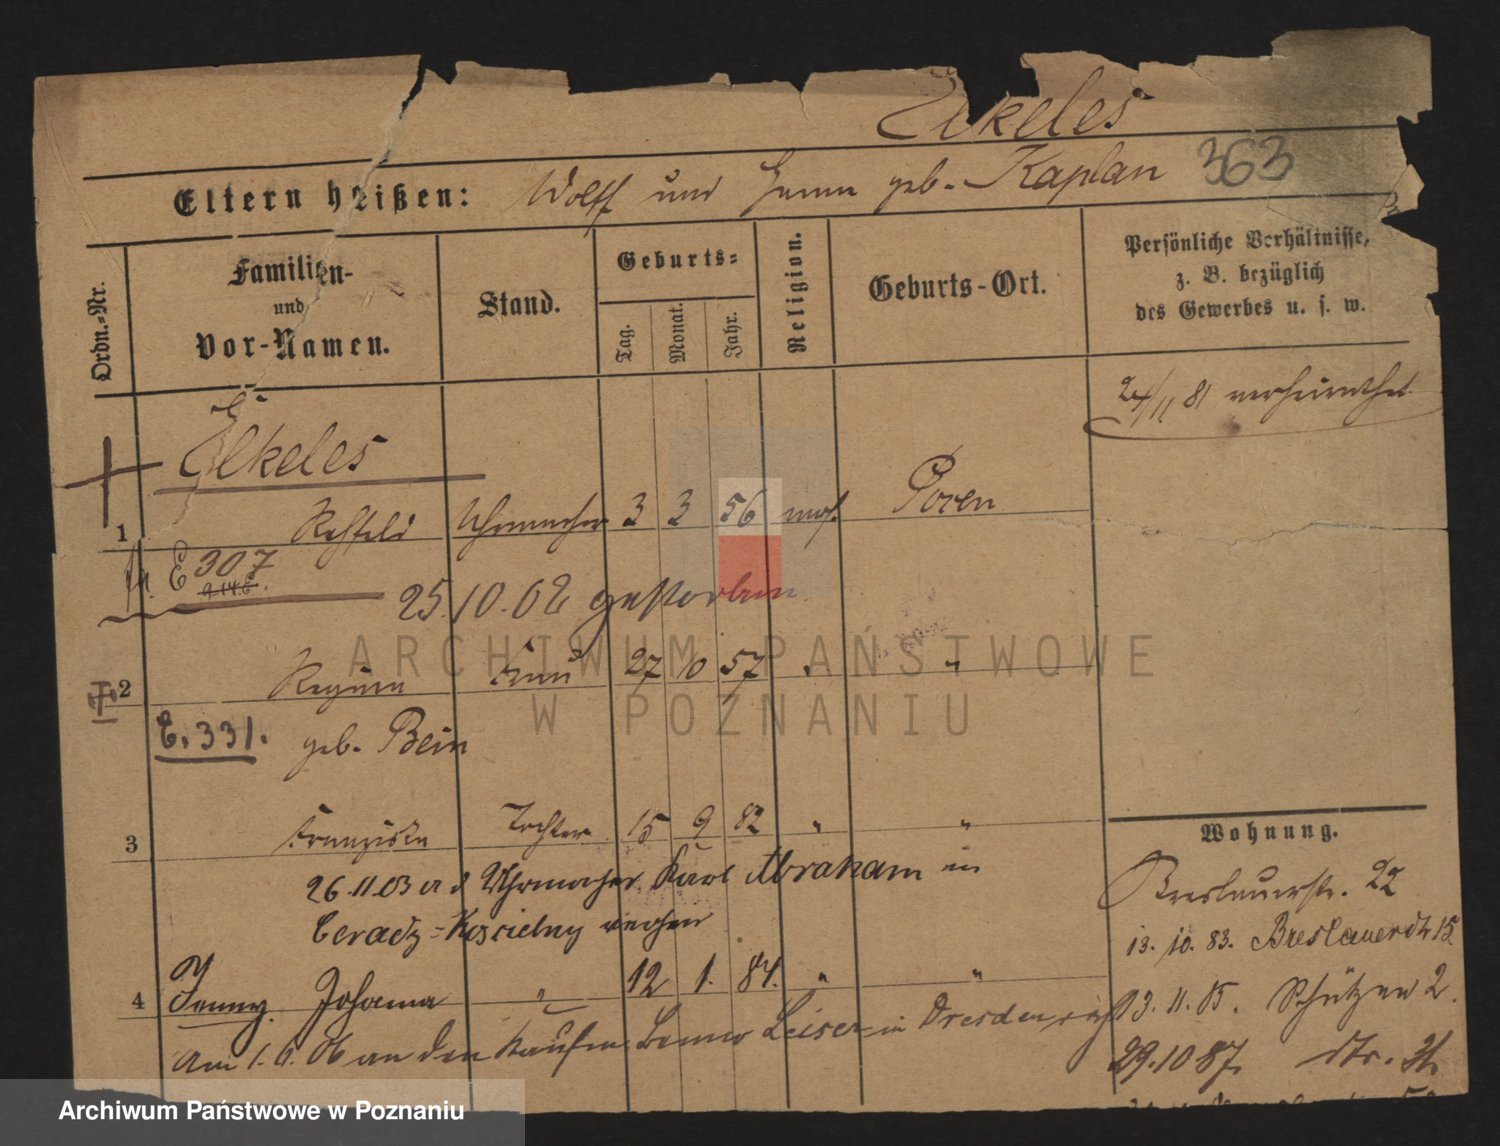 Elkeles
363
Eltern heißen: Wolff und geb. Kaplan
Ordn.-Nr.
Familien-
und
Vor-Namen.
Stand.
Geburts-
Tag.
Monat.
Jahr.
Religion.
Geburts-Ort.
Persönliche Verhältnisse,
z. B. bezüglich
des Gewerbes u. s. w.
24/11 81 verheirathet
Elkeles
1 Uhrmacher 3 3 56 mos. Posen
E 307
25.10.02 gestorben
2 Regina Frau 27 10 57 " "
E. 331. geb. Bein
3 Franziska Tochter 15 9 82 " "
26.11.03 a d Uhrmacher Karl Abraham in
Ceradz-Koscielny
4 Jenny Johanna " 12 1. 84. " "
Am 1. 6. 06 an den Kaufm. Leiser in Dresden
Wohnung.
Breslauerstr. 22
13. 10. 83. Breslauerstr 15
13. 11. 85. Schützen 2.
29.10 87. str. 31
ARCHIWUM PAŃSTWOWE
W POZNANIU
Archiwum Państwowe w Poznaniu